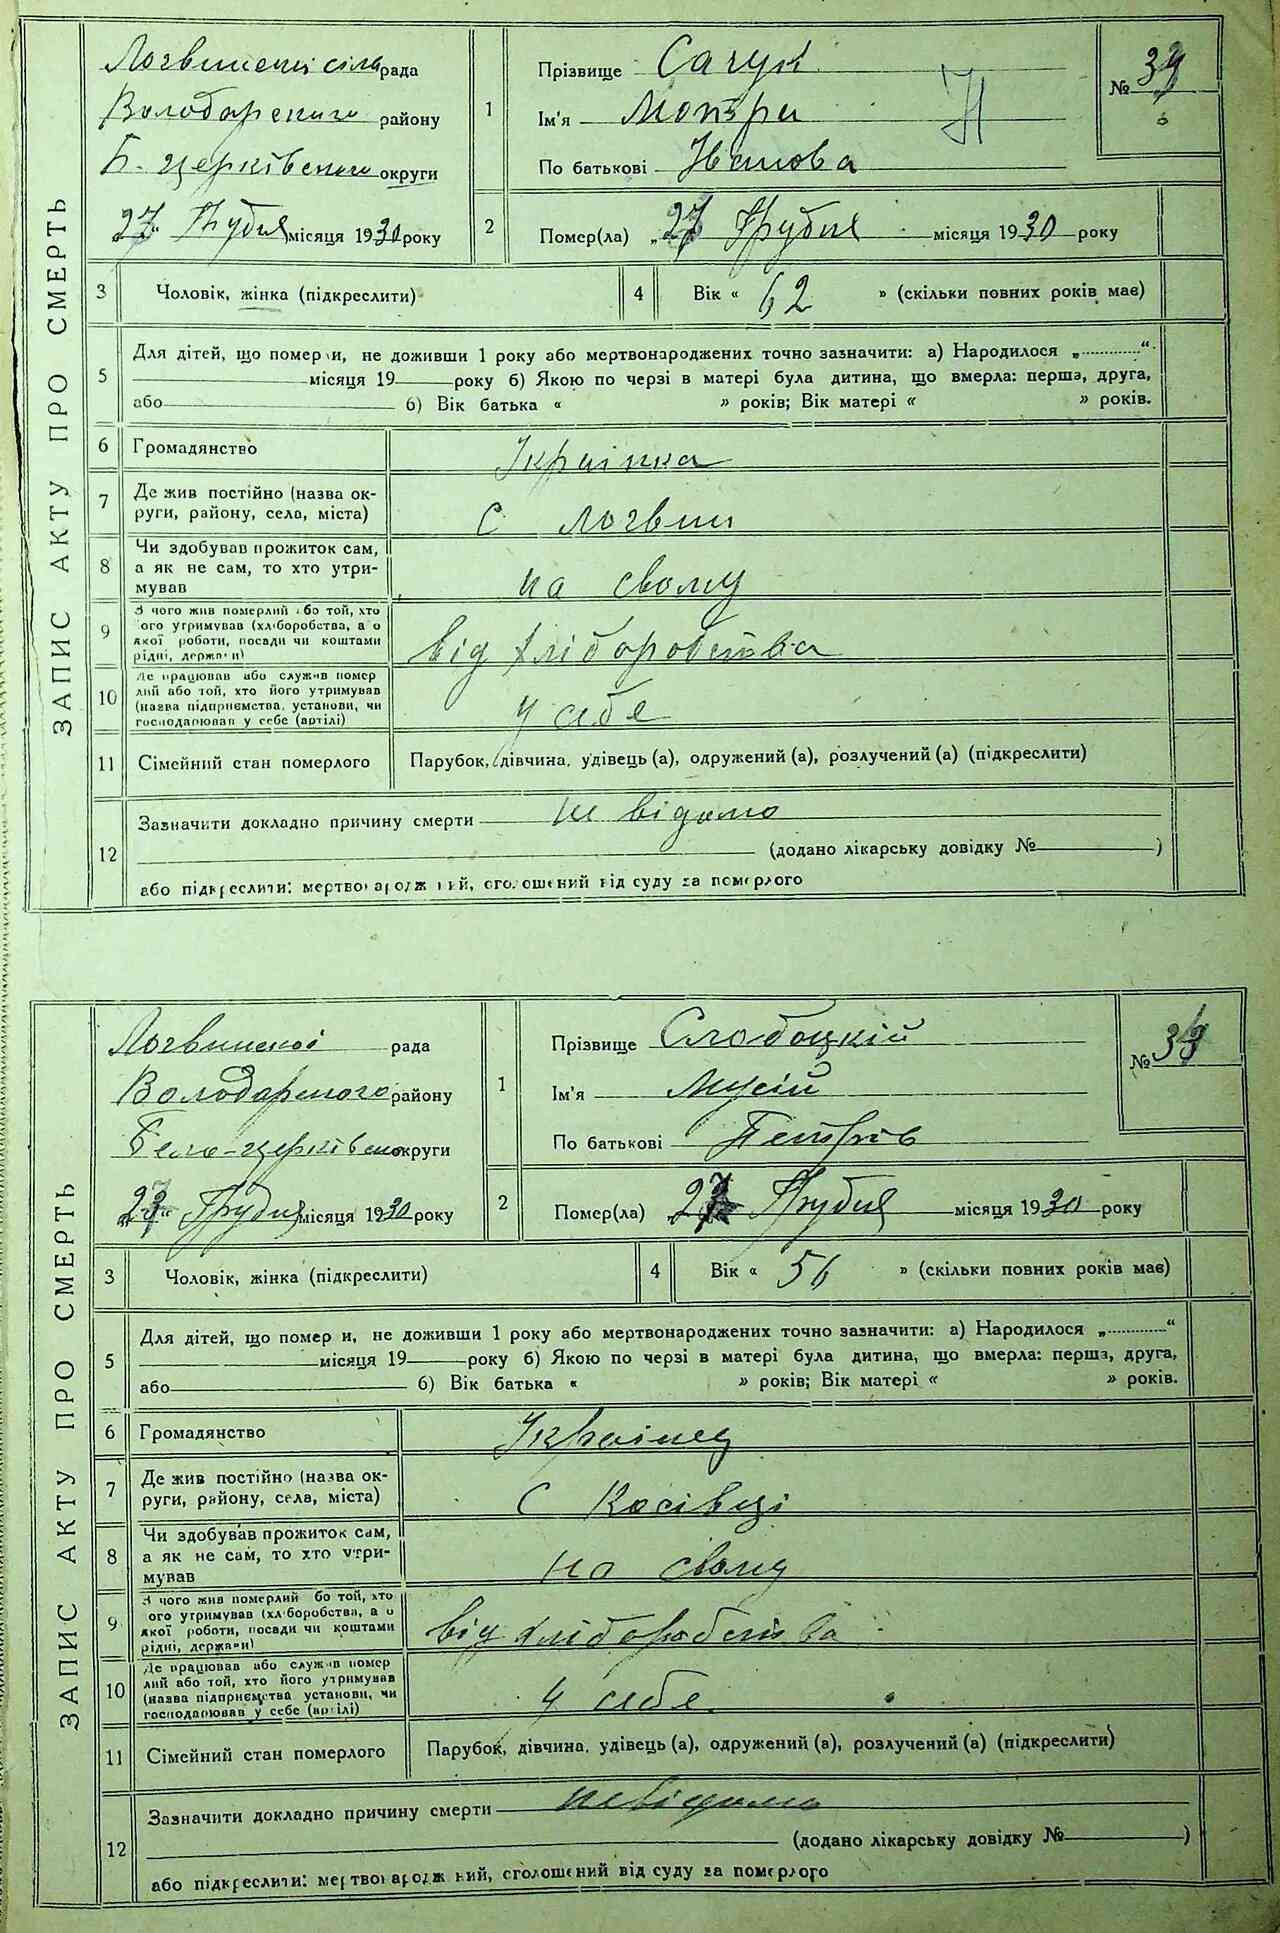 ЗАПИС АКТУ ПРО СМЕРТЬ
рада
Володарского району
Б. церківського округи
27 Грудня місяця 1930 року
1
Прізвище Сачук
Ім'я Мотря
По батькові Іванова
№
2
Помер(ла) „27 Грудня місяця 1930 року
3
Чоловік, жінка (підкреслити)
4
Вік « 62 » (скільки повних років має)
5
Для дітей, що померли, не доживши 1 року або мертвонароджених точно зазначити: а) Народилося „ “
місяця 19 року б) Якою по черзі в матері була дитина, що вмерла: перша, друга,
або 6) Вік батька « » років; Вік матері « » років.
6
Громадянство
Українка
7
Де жив постійно (назва ок-
руги, району, села, міста)
с Логвин
8
Чи здобував прожиток сам,
а як не сам, то хто утри-
мував
на свому
9
З чого жив померлий або той, хто
його утримував (хліборобства, або
якої роботи, посади чи коштами
рідні, держави)
від хліборобства
10
Де працював або служив помер
лий або той, хто його утримував
(назва підприємства, установи, чи
господарював у себе (артілі)
у себе
11
Сімейний стан померлого
Парубок, дівчина, удівець (а), одружений (а), розлучений (а) (підкреслити)
12
Зазначити докладно причину смерти не відомо
(додано лікарську довідку № )
або підкреслити: мертвонароджений, оголошений від суду за померлого
ЗАПИС АКТУ ПРО СМЕРТЬ
рада
Володарского району
Бело-церківської округи
„27“ Грудня місяця 1930 року
1
Прізвище Слободцкій
Ім'я Мусій
По батькові Петров
№
2
Помер(ла) 27 Грудня місяця 1930 року
3
Чоловік, жінка (підкреслити)
4
Вік « 56 » (скільки повних років має)
5
Для дітей, що померли, не доживши 1 року або мертвонароджених точно зазначити: а) Народилося „ “
місяця 19 року б) Якою по черзі в матері була дитина, що вмерла: перша, друга,
або 6) Вік батька « » років; Вік матері « » років.
6
Громадянство
Українец
7
Де жив постійно (назва ок-
руги, району, села, міста)
С Косівці
8
Чи здобував прожиток сам,
а як не сам, то хто утри-
мував
на свому
9
З чого жив померлий або той, хто
його утримував (хліборобства, або
якої роботи, посади чи коштами
рідні, держави)
від хліборобства
10
Де працював або служив помер
лий або той, хто його утримував
(назва підприємства установи, чи
господарював у себе (артілі)
у себе
11
Сімейний стан померлого
Парубок, дівчина, удівець (а), одружений (а), розлучений (а) (підкреслити)
12
Зазначити докладно причину смерти невідомо
(додано лікарську довідку № )
або підкреслити: мертвонароджений, оголошений від суду за померлого